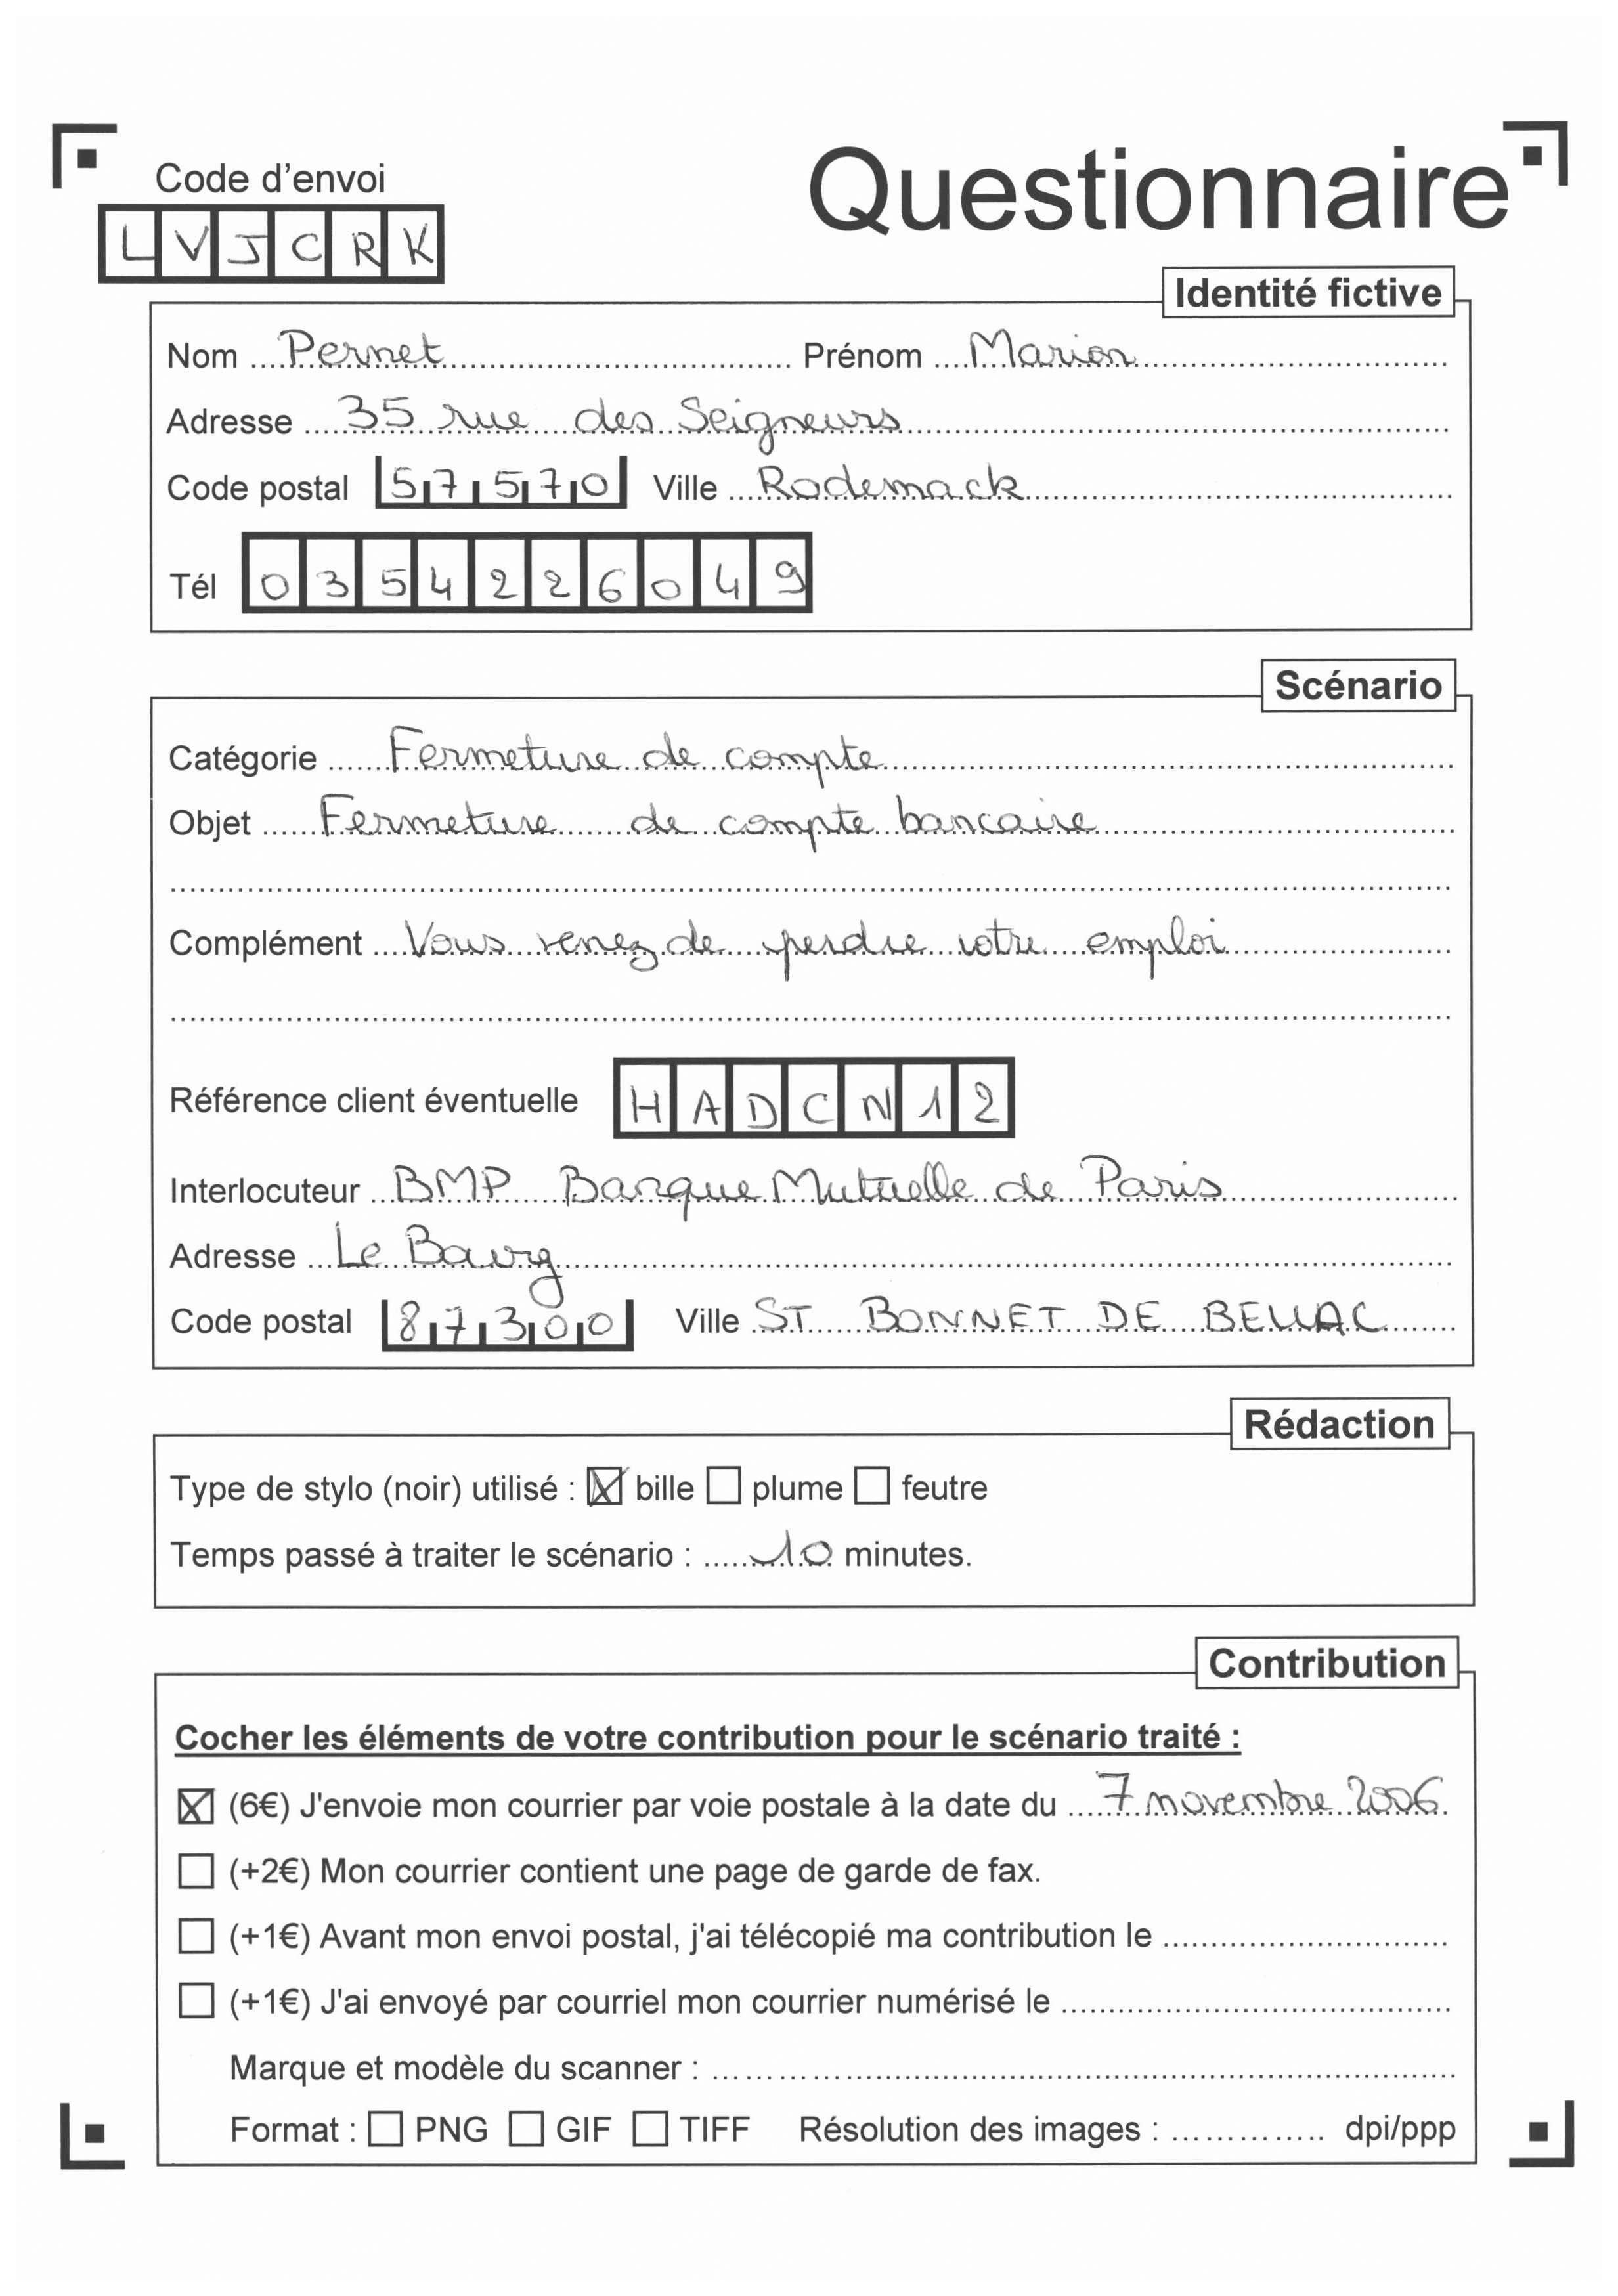 Code d'envoi
Questionnaire
LVJCRK
Identité fictive
Nom Pernet Prénom Marion
Adresse 35 rue des Seigneurs
Code postal 57570 Ville Rodemack
Tél 0354226049
Scénario
Catégorie Fermeture de compte
Objet Fermeture de compte bancaire
Complément Vous venez de perdre votre emploi
Référence client éventuelle HADCN12
Interlocuteur BMP Banque Mutuelle de Paris
Adresse Le Bourg
Code postal 87300 Ville ST BONNET DE BELLAC
Rédaction
Type de stylo (noir) utilisé : bille plume feutre
Temps passé à traiter le scénario : 10 minutes.
Contribution
Cocher les éléments de votre contribution pour le scénario traité :
(6€) J'envoie mon courrier par voie postale à la date du 7 novembre 2006
(+2€) Mon courrier contient une page de garde de fax.
(+1€) Avant mon envoi postal, j'ai télécopié ma contribution le
(+1€) J'ai envoyé par courriel mon courrier numérisé le
Marque et modèle du scanner :
Format : PNG GIF TIFF Résolution des images : dpi/ppp